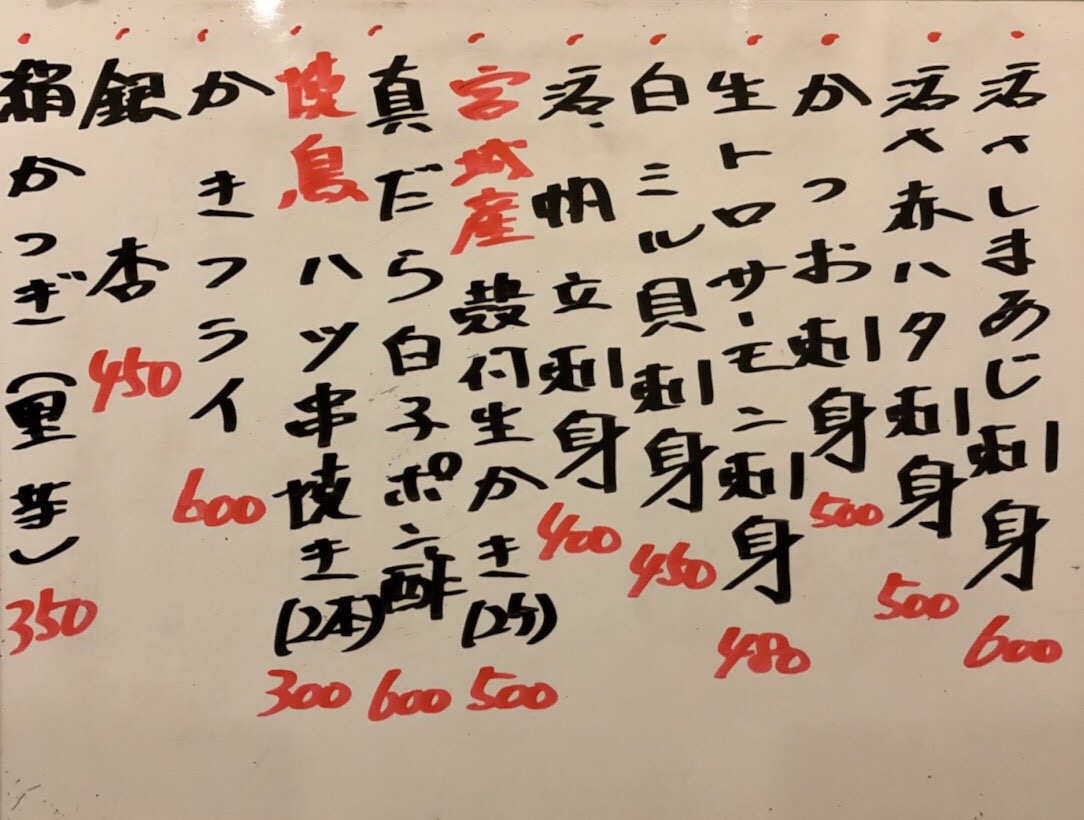 活〆しまあじ刺身 600
活〆赤ハタ刺身 500
かつお刺身 500
生トロサーモン刺身 480
白ミル貝刺身 450
活帆立刺身 400
宮城産殻付生かき(2ケ) 500
真だら白子ポン酢 600
焼鳥ハツ串焼き(2本) 300
かきフライ 600
銀杏 450
絹かつぎ(里芋) 350